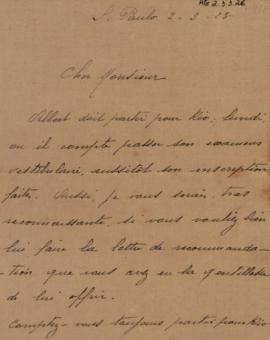 S. Paulo 2-3-23-
Cher Monsieur
Albert doit partir pour Rio, lundi
ou il compte passer son examens
vestibulaire, aussitôt son inscription
faite. Aussi, je vous serais tres
reconnaissante, si vous vouliez bien
lui faire la lettre de recommanda-
tion que vous avez eu la gentillesse
de lui offrir.
Comptez-vous toujours partir pour Rio